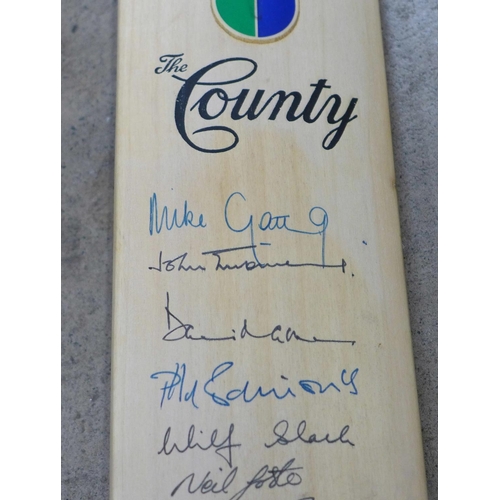 The
County
Mike Gatting
John Emburey
David
Phil Edmonds
Wilf Slack
Neil Foster